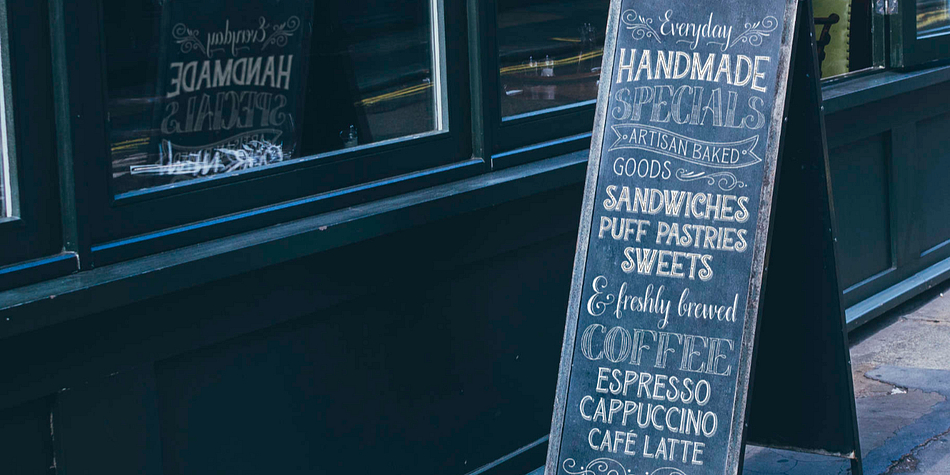 Everyday
HANDMADE
SPECIALS
ARTISAN BAKED
GOODS
SANDWICHES
PUFF PASTRIES
SWEETS
& freshly brewed
COFFEE
ESPRESSO
CAPPUCCINO
CAFÉ LATTE
Everyday
HANDMADE
SPECIALS